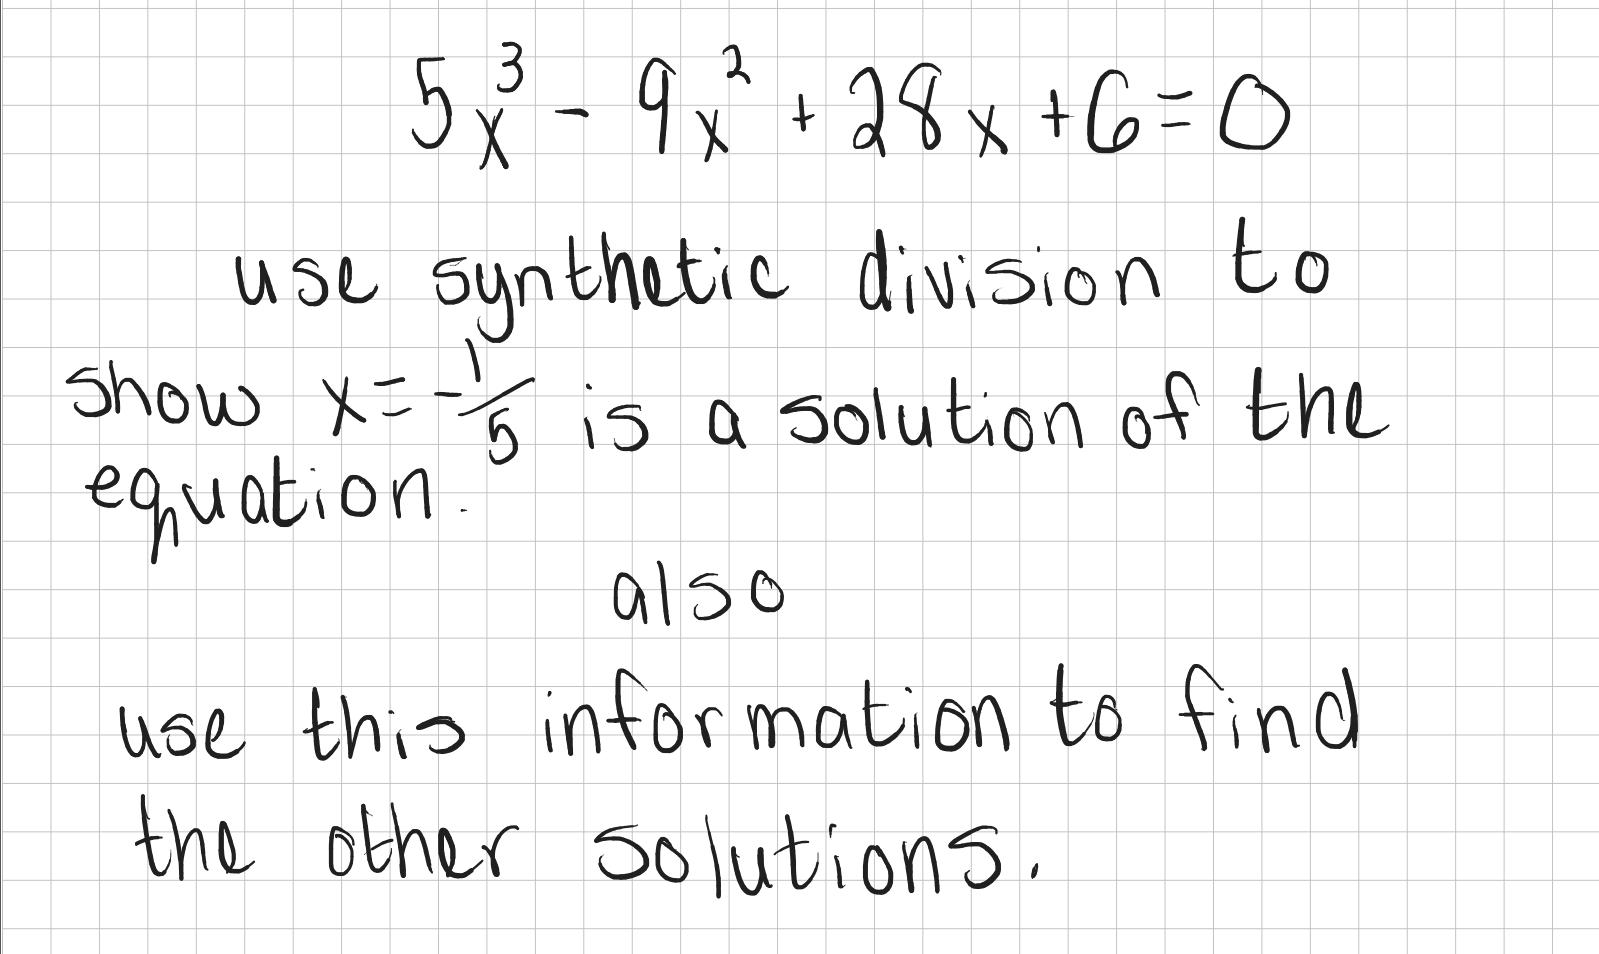 5x³ - 9x² + 28x + 6 = 0
use synthetic division to
show x = -1/5 is a solution of the
equation.
also
use this information to find
the other solutions.